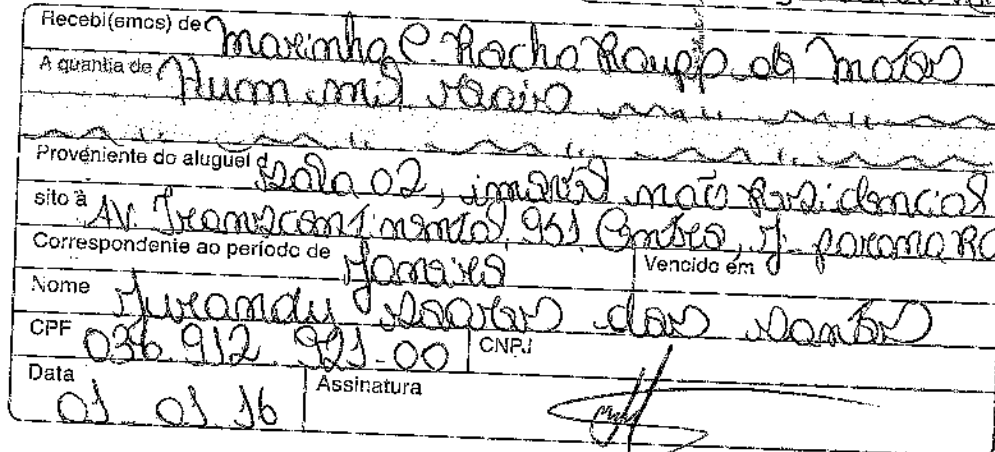 Recebi(emos) de Marinha C. Rocha Raupp de Matos
A quantia de Hum mil reais
Proveniente do aluguel d Sala 02, imóvel não Residencial
sito à AV. Transcontinental 951 Centro, Ji-paraná RO
Correspondente ao período de Janeiro Vencido em
Nome Jurandy Soares dos Santos
CPF 036.912.921-00 CNPJ
Data 01 01 16 Assinatura